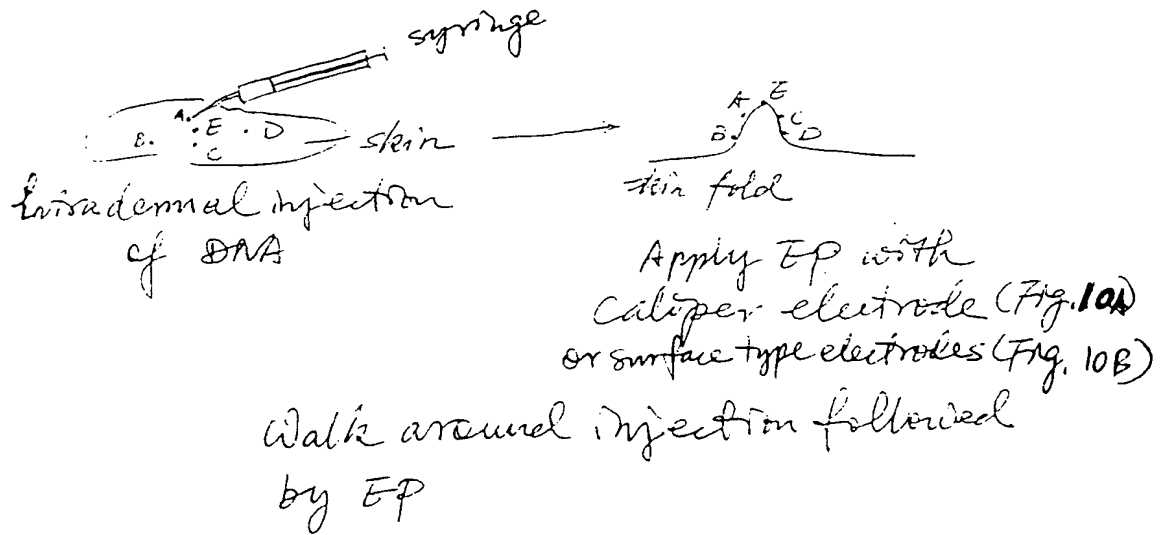 syringe
A. E D B. C
skin
A E C B D
Intradermal injection
of DNA
skin fold
Apply EP with
Caliper electrode (Fig. 10A)
or surface type electrodes (Fig. 10B)
Walk around injection followed
by EP